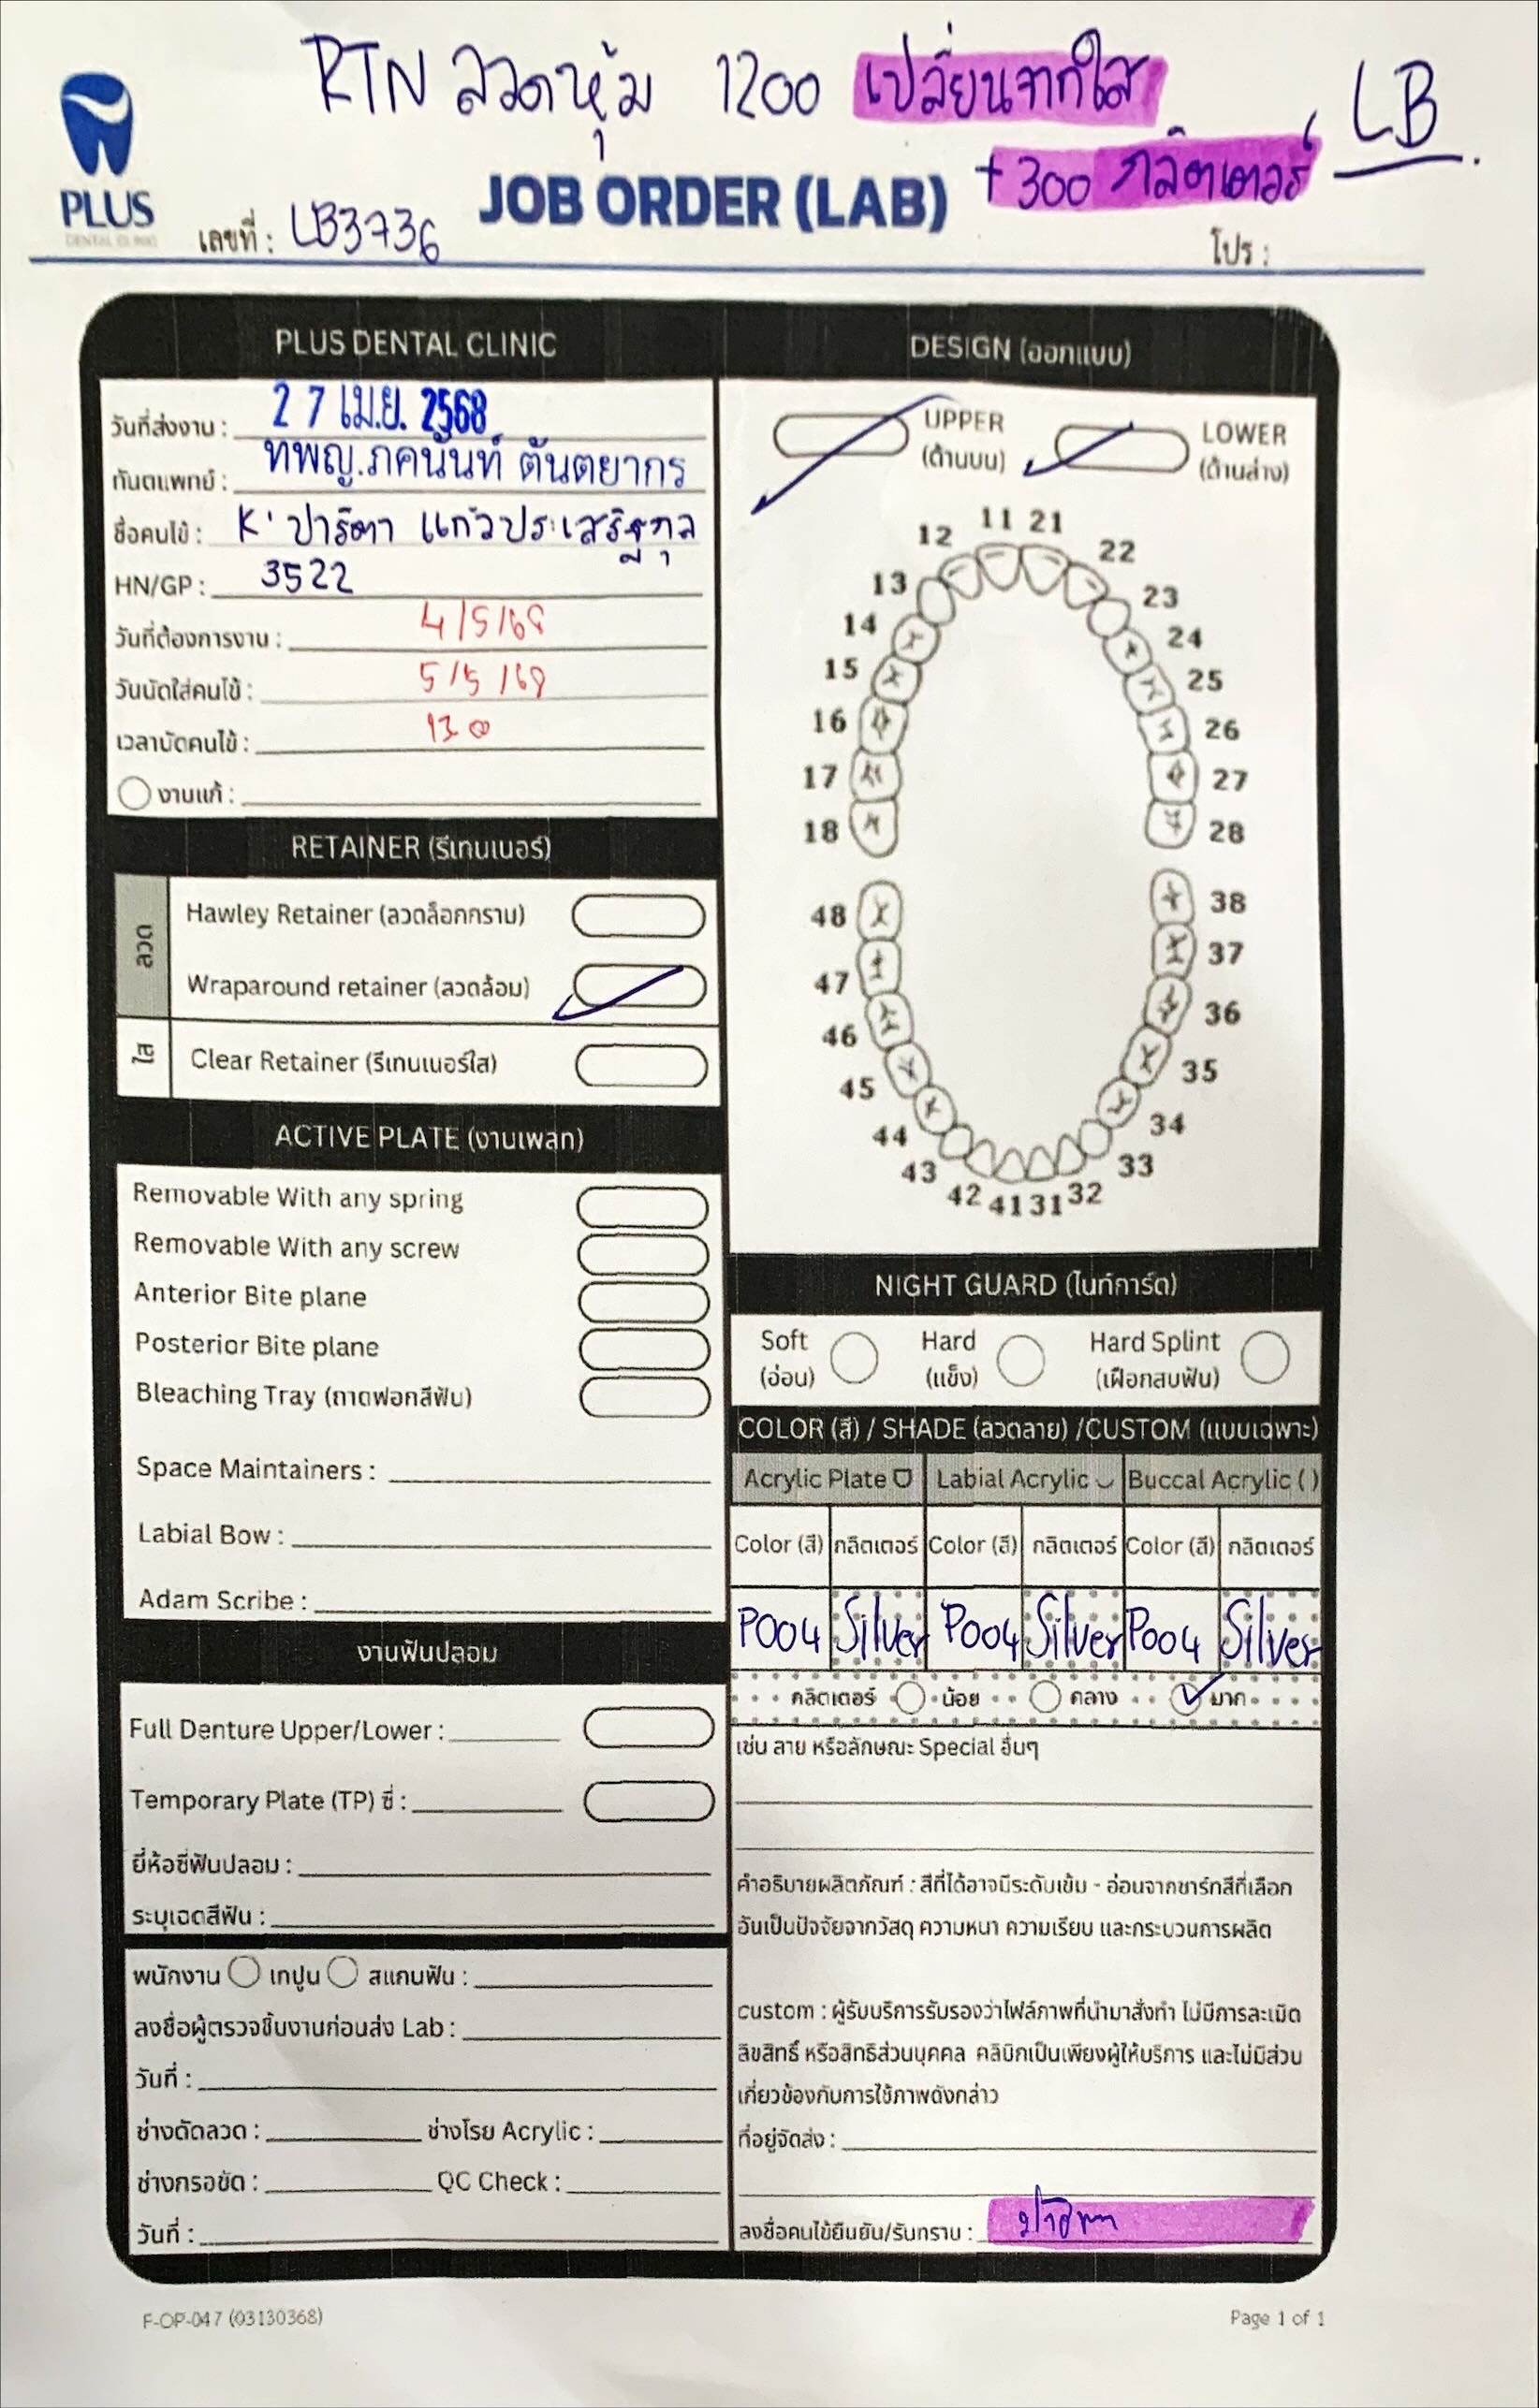 RTN ลวดหุ้ม 1200 เปลี่ยนจากใส LB
+300 กลิตเตอร์
PLUS
DENTAL CLINIC
เลขที่ : LB3736
JOB ORDER (LAB)
โปร :
PLUS DENTAL CLINIC
วันที่ส่งงาน : 27 เม.ย. 2568
ทันตแพทย์ : ทพญ.ภคนันท์ ตันตยากร
ชื่อคนไข้ : K' ปาริตา แก้วประเสริฐกุล
HN/GP : 3522
วันที่ต้องการงาน : 4/5/68
วันนัดใส่คนไข้ : 5/5/68
เวลานัดคนไข้ : 1300
งานแก้ :
RETAINER (รีเทนเนอร์)
ลวด
Hawley Retainer (ลวดล็อกกราม)
Wraparound retainer (ลวดล้อม)
ใส
Clear Retainer (รีเทนเนอร์ใส)
ACTIVE PLATE (งานเพลท)
Removable With any spring
Removable With any screw
Anterior Bite plane
Posterior Bite plane
Bleaching Tray (ถาดฟอกสีฟัน)
Space Maintainers :
Labial Bow :
Adam Scribe :
งานฟันปลอม
Full Denture Upper/Lower :
Temporary Plate (TP) ซี่ :
ยี่ห้อซี่ฟันปลอม :
ระบุเฉดสีฟัน :
พนักงาน เทปูน สแกนฟัน :
ลงชื่อผู้ตรวจชิ้นงานก่อนส่ง Lab :
วันที่ :
ช่างดัดลวด : ช่างโรย Acrylic :
ช่างกรอขัด : QC Check :
วันที่ :
DESIGN (ออกแบบ)
UPPER
(ด้านบน)
LOWER
(ด้านล่าง)
11 21
12 22
13 23
14 24
15 25
16 26
17 27
18 28
48 38
47 37
46 36
45 35
44 34
43 33
42 41 31 32
NIGHT GUARD (ไนท์การ์ด)
Soft
(อ่อน)
Hard
(แข็ง)
Hard Splint
(เฝือกสบฟัน)
COLOR (สี) / SHADE (ลวดลาย) /CUSTOM (แบบเฉพาะ)
Acrylic Plate Labial Acrylic Buccal Acrylic ( )
Color (สี) กลิตเตอร์ Color (สี) กลิตเตอร์ Color (สี) กลิตเตอร์
P004 Silver P004 Silver P004 Silver
กลิตเตอร์ น้อย กลาง มาก
เช่น ลาย หรือลักษณะ Special อื่นๆ
คำอธิบายผลิตภัณฑ์ : สีที่ได้อาจมีระดับเข้ม - อ่อนจากชาร์ทสีที่เลือก
อันเป็นปัจจัยจากวัสดุ ความหนา ความเรียบ และกระบวนการผลิต
custom : ผู้รับบริการรับรองว่าไฟล์ภาพที่นำมาสั่งทำ ไม่มีการละเมิด
ลิขสิทธิ์ หรือสิทธิส่วนบุคคล คลินิกเป็นเพียงผู้ให้บริการ และไม่มีส่วน
เกี่ยวข้องกับการใช้ภาพดังกล่าว
ที่อยู่จัดส่ง :
ลงชื่อคนไข้ยืนยัน/รับทราบ : ปาริตา
F-OP-047 (03130368)
Page 1 of 1